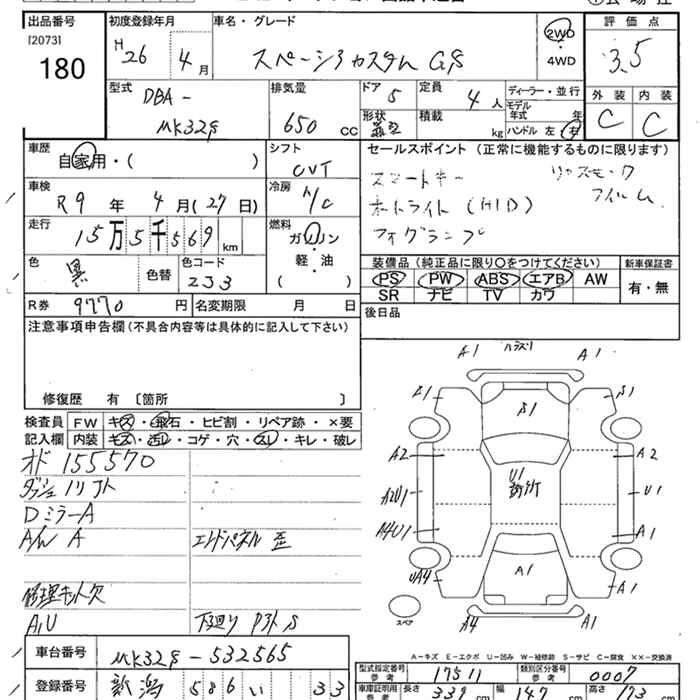 出品番号
[2073]
180
初度登録年月
H26年 4月
車名・グレード
スペーシアカスタム GS
2WD
4WD
評価点
3.5
型式
DBA-
MK32S
排気量
650 CC
ドア 5
形状
定員 4人
積載 kg
ディーラー・並行
モデル年式 年
ハンドル 左 右
外装 内装
C C
車歴
自家用・( )
シフト
CVT
セールスポイント (正常に機能するものに限ります)
スマートキー
オートライト (HID)
フォグランプ
リヤスモーク
フイルム
車検
R9年 4月(27日)
冷房
A/C
走行
15万5千569km
燃料
ガソリン
軽・油
( ・ )
色
黒
色替
色コード
ZJ3
装備品 (純正品に限り○をつけてください)
PS PW ABS エアB AW
SR ナビ TV カワ
新車保証書
有・無
R券 9770円
名変期限 月 日
後日品
注意事項申告欄 (不具合内容等は具体的に記入して下さい)
修復歴 有 〔箇所 〕
検査員
記入欄
FW キズ・飛石・ヒビ割・リペア跡・×要
内装 キズ・汚レ・コゲ・穴・スレ・キレ・破レ
オド 155570
ダッシュノリ外ト
DミラーA
A/W A
エンドパネル 歪
修理キット欠
A,U
下廻り サビ外 S
A1 A1
B1 B1 B1
A2 A2
A2U1 U1 U1
A4U1 A1
UA4 A1 A1
A4 A1
スペア
A-キズ E-エクボ U-凹み W-補修跡 S-サビ C-腐食 ××-交換済
車台番号
MK32S-532565
登録番号
新潟 586 い 33
型式指定番号
参考
17511
類別区分番号
参考
0007
車庫証明用
参考
長さ 339cm 幅 147cm